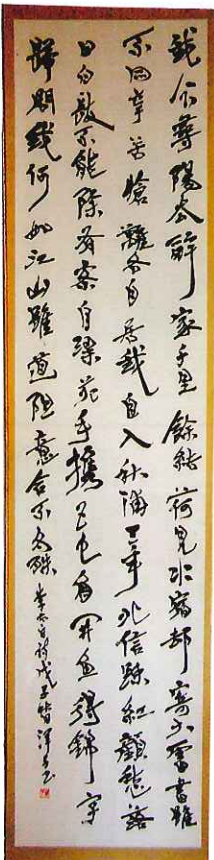 我今尋陽去辭家千里餘結荷見水宿却寄大雷書雖
不同辛苦愴離各自居我自入秋浦三年北信疎紅顏愁落
日白髮不能除有客自梁苑手携五色魚開魚得錦字
歸問我何如江山雖道阻意合不為殊 李太白詩